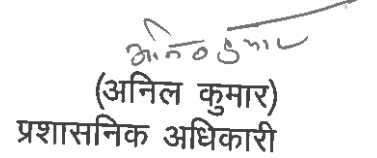 अनिल कुमार
(अनिल कुमार)
प्रशासनिक अधिकारी